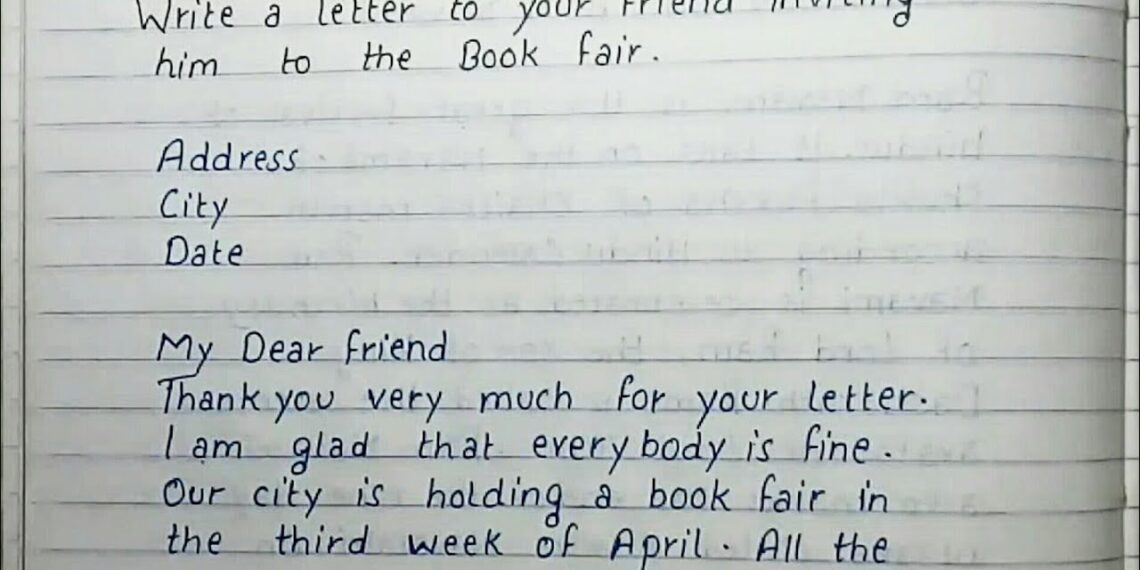 Write a letter to your friend inviting
him to the Book fair.
Address
City
Date
My Dear friend
Thank you very much for your letter.
I am glad that everybody is fine.
Our city is holding a book fair in
the third week of April. All the